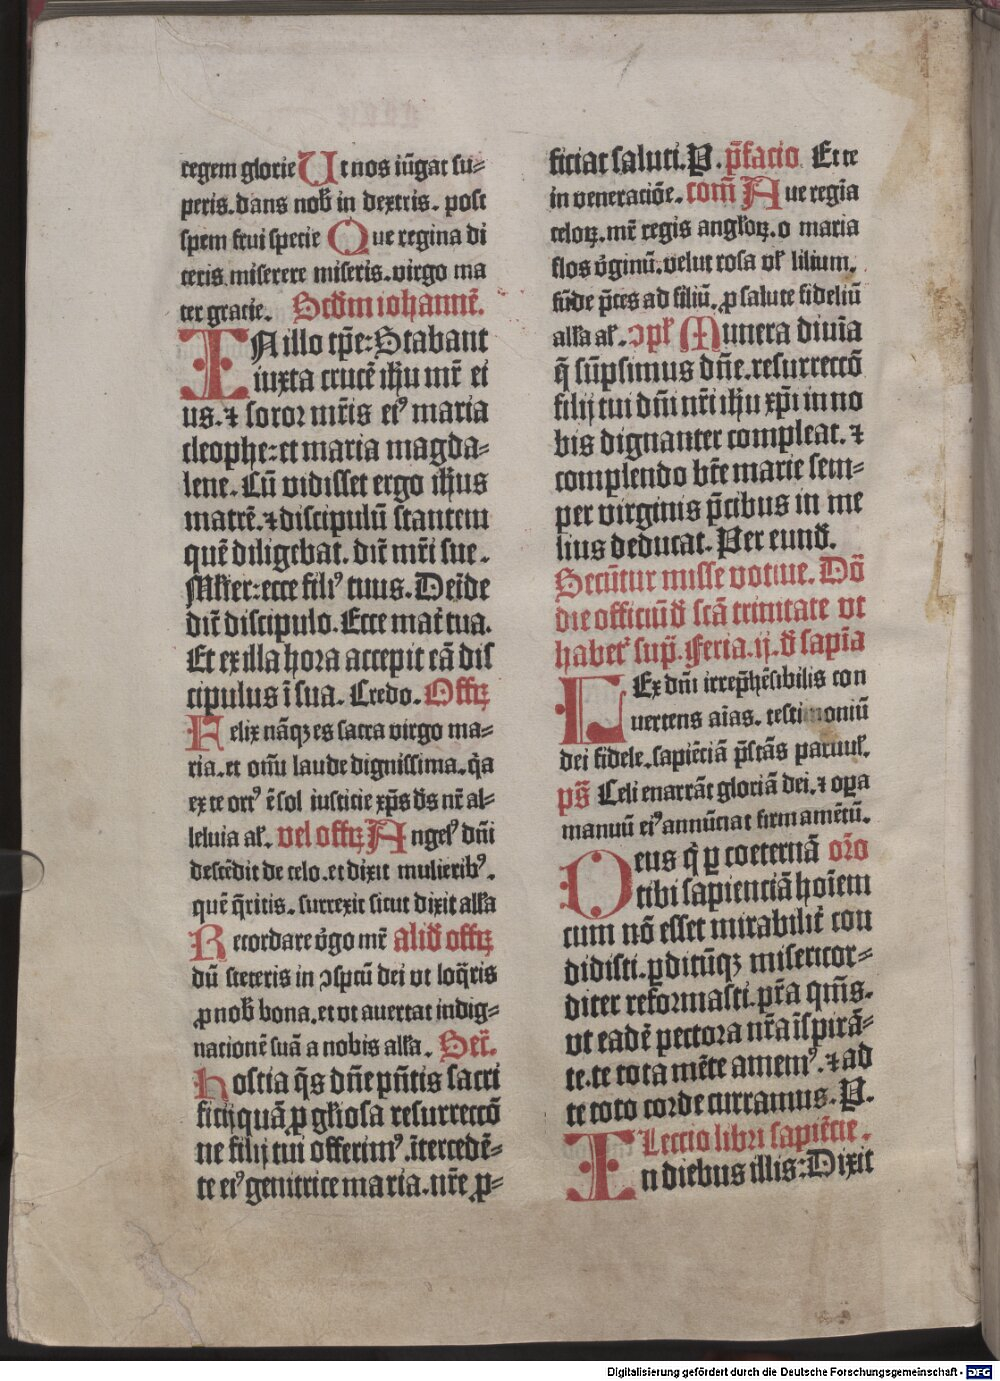 regem glorie Ut nos iūgat su⸗
peris. dans nob̄ in dextris. post
spem frui specie Que regina di
ceris miserere miseris. virgo ma
ter gratie. Scd̄m iohannē.
IN illo tp̄e: Stabant
iuxta crucē ih̄u mr̄ ei
us. ⁊ soror mr̄is eiꝰ maria
cleophe: et maria magda⸗
lene. Cū vidisset ergo ih̄us
matrē. ⁊ discipulū stantem
quē diligebat. dic̄ mr̄i sue.
Mr̄er: ecce filiꝰ tuus. Deīde
dic̄ discipulo. Ecce mat̄ tua.
Et ex illa hora accepit eā dis
cipulus ī sua. Credo. Offꝝ
Felix nāqꝫ es sacra virgo ma⸗
ria. et om̄i laude dignissima. q̄a
ex te ortꝰ ē sol iusticie xp̄s d̄s nr̄ al⸗
leluia al̄. vel offꝝ Angelꝰ dn̄i
descēdit de celo. et dixit mulieribꝰ.
quē q̄ritis. surrexit sicut dixit alľa
Recordare v̄go mr̄ aliď offꝝ
dū steteris in ↄspcū dei vt loq̄ris
ꝓ nob̄ bona. et vt auertat indig⸗
nationē suā a nobis alľa. Secͬ.
Hostia q̄s dn̄e pn̄tis sacri
ficij quā ꝓ gľiosa resurreccō
ne filij tui offerimꝰ. īntercedē⸗
te eiꝰ genitrice maria. nr̄e ꝓ⸗
ficiat saluti. P. p̄facio Et te
in veneraciōe. com̄ Aue regīa
celoꝝ. mr̄ regis angľoꝝ. o maria
flos v̄ginū. velut rosa vľ lilium.
fūde p̄ces ad filiū. ꝓ salute fideliū
alľa al̄. ↄpľ Munera diuīa
q̄ sūpsimus dn̄e. resurreccō
filij tui dn̄i nr̄i ih̄u xp̄i in no
bis dignanter compleat. ⁊
complendo bt̄e marie sem⸗
per virginis p̄cibus in me
lius deducat. Per eunď.
Secūtur misse votiue. Dō
die officiū ď scā trinitate vt
habetͬ sup̄. Feria. ij. ď sapīa
LEx dn̄i irrep̄hēsibilis con
uertens aīas. testimoniū
dei fidele. sapiēciā p̄stās paruuľ.
ps̄ Celi enarrāt gloriā dei. ⁊ oꝑa
manuū eiꝰ annūciat firmamētū.
Deus q̇ ꝑ coeternā or̄o
tibi sapienciā hoīem
cum nō esset mirabilit̄ con
didisti. ꝑditūqꝫ misericor⸗
diter reformasti. pr̄a qm̄s.
vt eadē pectora nr̄a īspirā⸗
te. te tota mēte amemꝰ. ⁊ ad
te toto corde curramus. P.
Leccio libri sapiēcie.
In diebus illis: Dixit
Digitalisierung gefördert durch die Deutsche Forschungsgemeinschaft - DFG